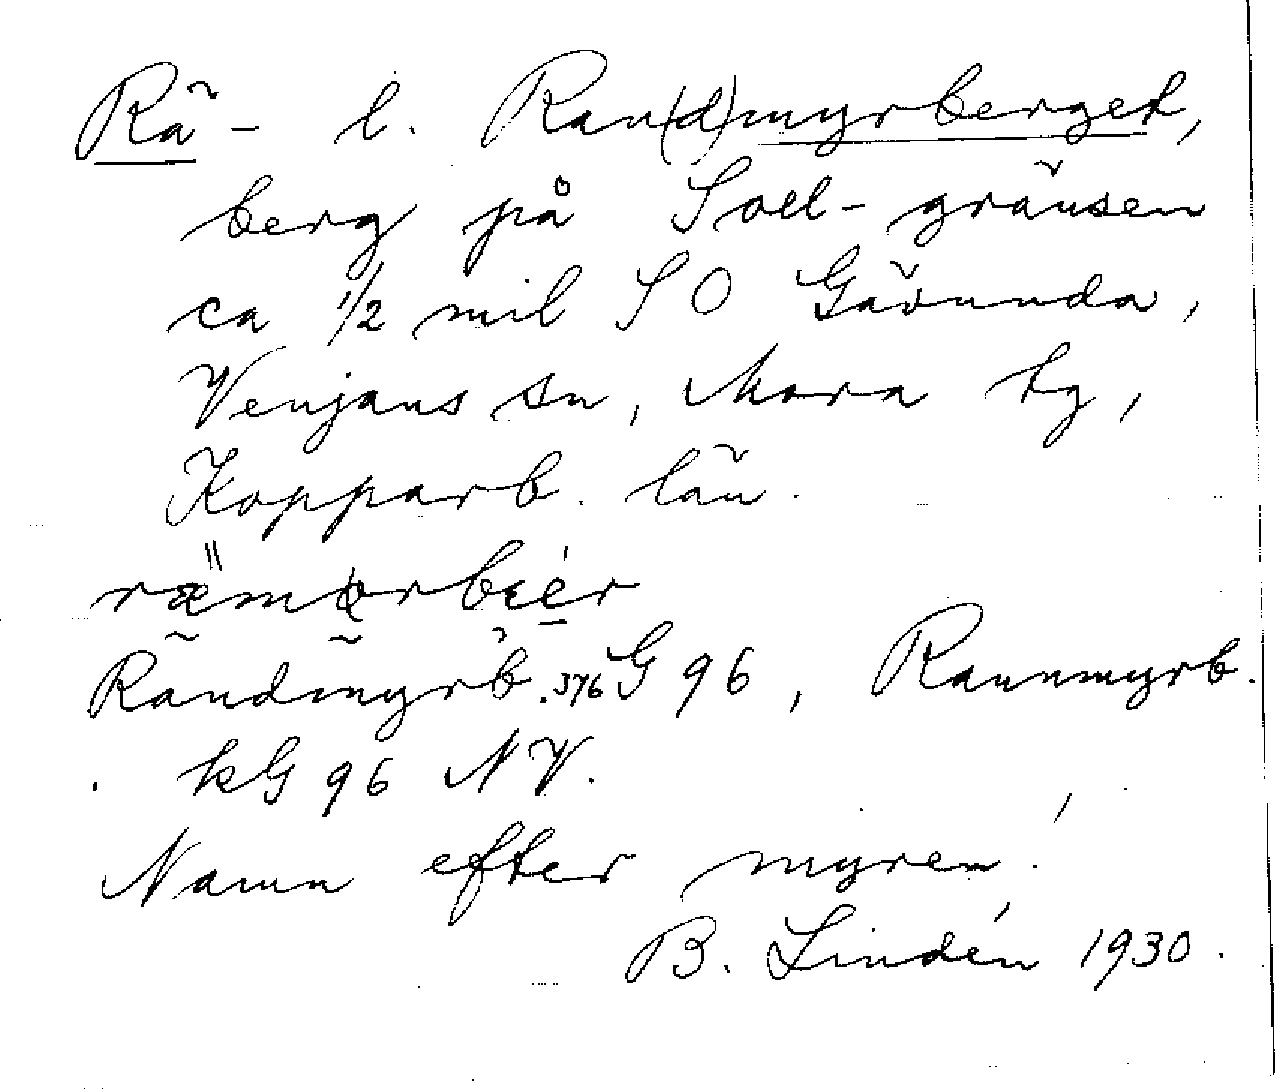 Rä- l. Ran(d)myrberget,
berg på Soll-gränsen
ca 1/2 mil SO Gävunda,
Venjans sn, Mora tg,
Kopparb. län.
Rändmyrb. 376 G 96, Rannmyrb.
kG 96 NV.
Namn efter myren.
B. Lindén 1930.